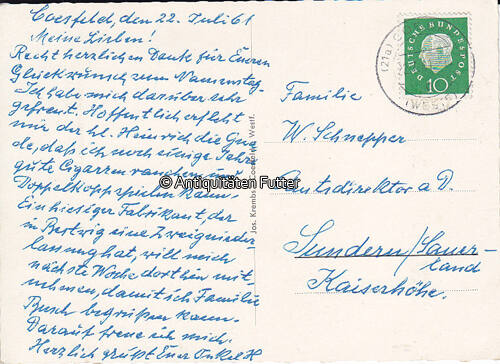 Coesfeld, den 22. Juli 61
Meine Lieben!
Recht herzlichen Dank für Eueren
Glückwunsch zum Namenstag.
Ich habe mich darüber sehr
gefreut. Hoffentlich erfleht
mir der hl. Heinrich die Gna-
de, daß ich noch einige Jahre
gute Cigarren rauchen und
Doppelkopp spielen kann.
Ein hiesiger Fabrikant, der
in Bestwig eine Zweignieder
lassung hat, will mich
nächste Woche dorthin mit-
nehmen, damit ich Familie
Busch begrüßen kann.
Darauf freue ich mich.
Herzlich grüßt Euer Onkel H
Jos. Coesfeld Westf.
© Antiquitäten Futter
DEUTSCHE BUNDESPOST
10
(21a) C
(WESTF)
Familie
W. Schnepper
Amtsdirektor a. D.
Sundern/Sauer-
land
Kaiserhöhe.